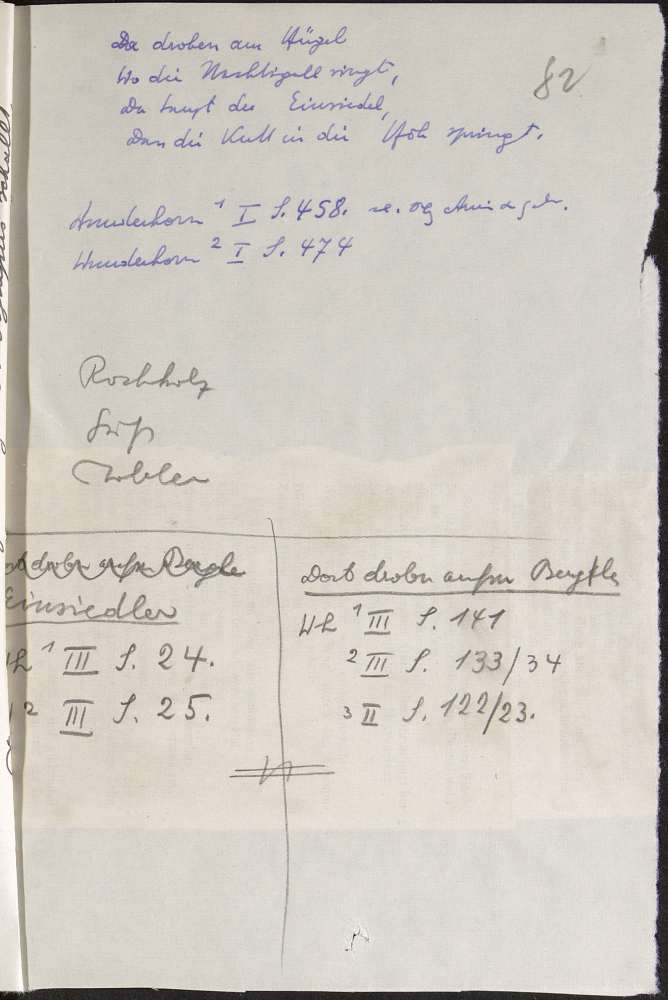 82
Da droben am Hügel
Wo die Nachtigall singt,
Da tanzt der Einsiedel,
Dan die Kutt in die Höh springt.
Wunderhorn ¹ I S. 458.
Wunderhorn ² I S. 474
Rochholz
Süß
Tobler
droben aufm Bergle
Einsiedler
Wh ¹ III S. 24.
² III S. 25.
Dort droben aufm Bergle
Wh ¹ III S. 141
² III S. 133/34
³ II S. 122/23.